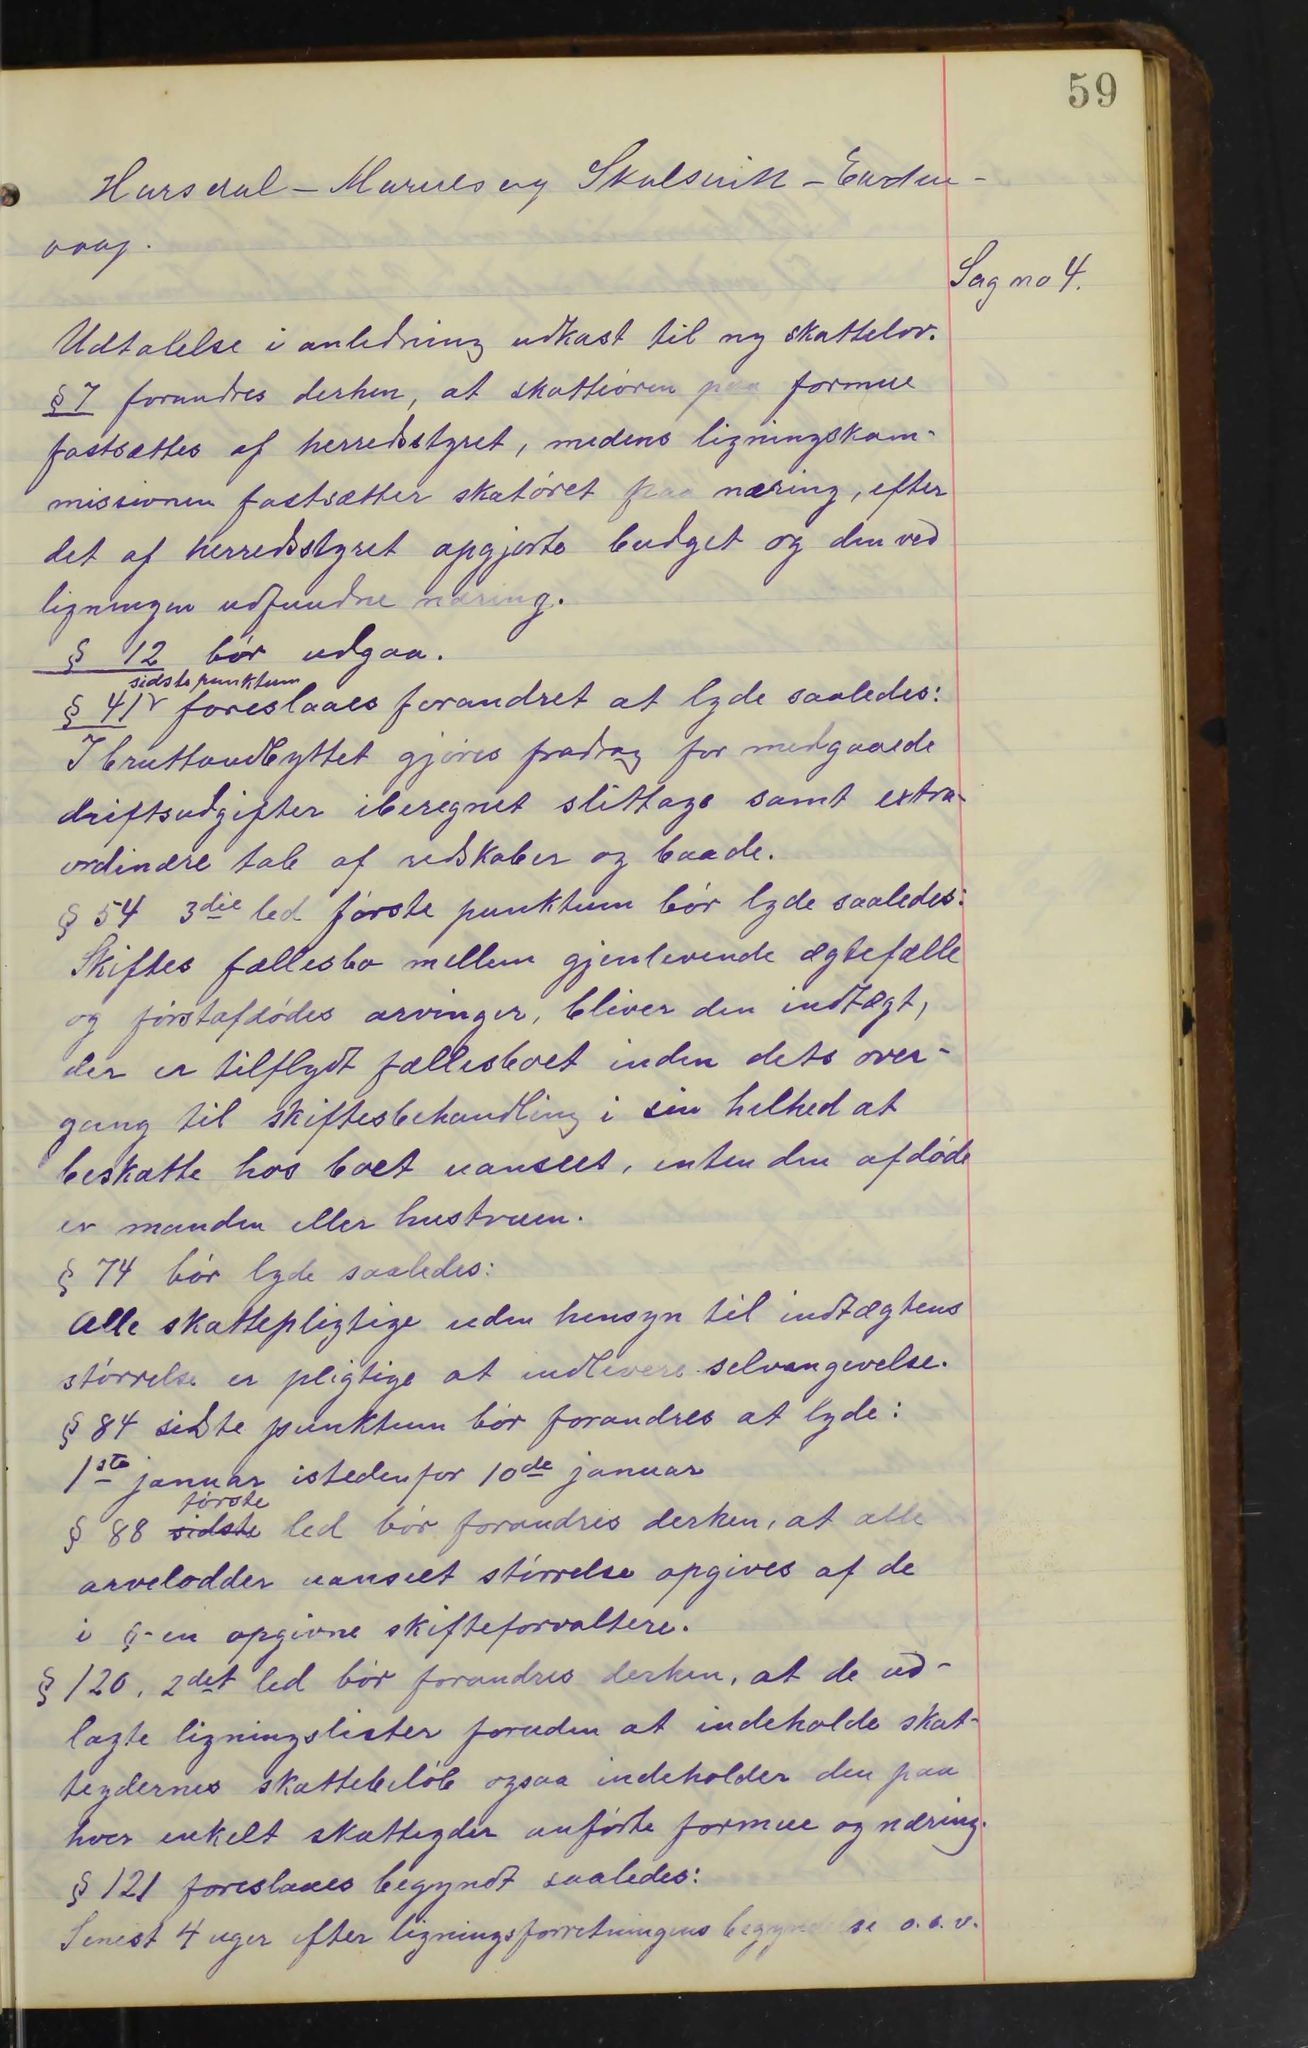 59
Hursdal – Marvelsøy Skalsvik – Eardem-
vaag.
Sag no 4.
Udtalelse i anledning udkast til ny skattelov.
§ 7 forandres derhen, at skatteøren paa formue
fastsættes af herredsstyret, medens ligningskom-
missionen fastsætter skatøret paa næring, efter
det af herredsstyret opgjorte budget og den ved
ligningen udfundne næring.
§ 12 bør udgaa.
sidste punktum
§ 41 foreslaaes forandret at lyde saaledes:
I bruttoudbyttet gjøres fradrag for medgaaede
driftsudgifter iberegnet slittage samt extra-
ordinære tab af redskaber og baade.
§ 54 3die led første punktum bør lyde saaledes:
Skiftes fællesbo mellem gjenlevende ægtefælle
og førstafdødes arvinger, bliver den indtægt,
der er tilflydt fællesboet inden dets over-
gang til skiftesbehandling i sin helhed at
beskatte hos boet uanseet, enten den afdøde
er manden eller hustruen.
§ 74 bør lyde saaledes:
Alle skattepligtige uden hensyn til indtægtens
størrelse er pligtige at indlevere selvangivelse.
§ 84 sidste punktum bør forandres at lyde:
1ste januar istedenfor 10de januar
første
§ 88 sidste led bør forandres derhen, at alle
arvelodder uanseet størrelse opgives af de
i §-en opgivne skifteforvaltere.
§ 120, 2det led bør forandres derhen, at de ud-
lagte ligningslister foruden at indeholde skat-
teydernes skattebeløb ogsaa indeholder den paa
hver enkelt skatteyder anførte formue og næring.
§ 121 foreslaaes begyndt saaledes:
Senest 4 uger efter ligningsforretningens begyndelse o.s.v.